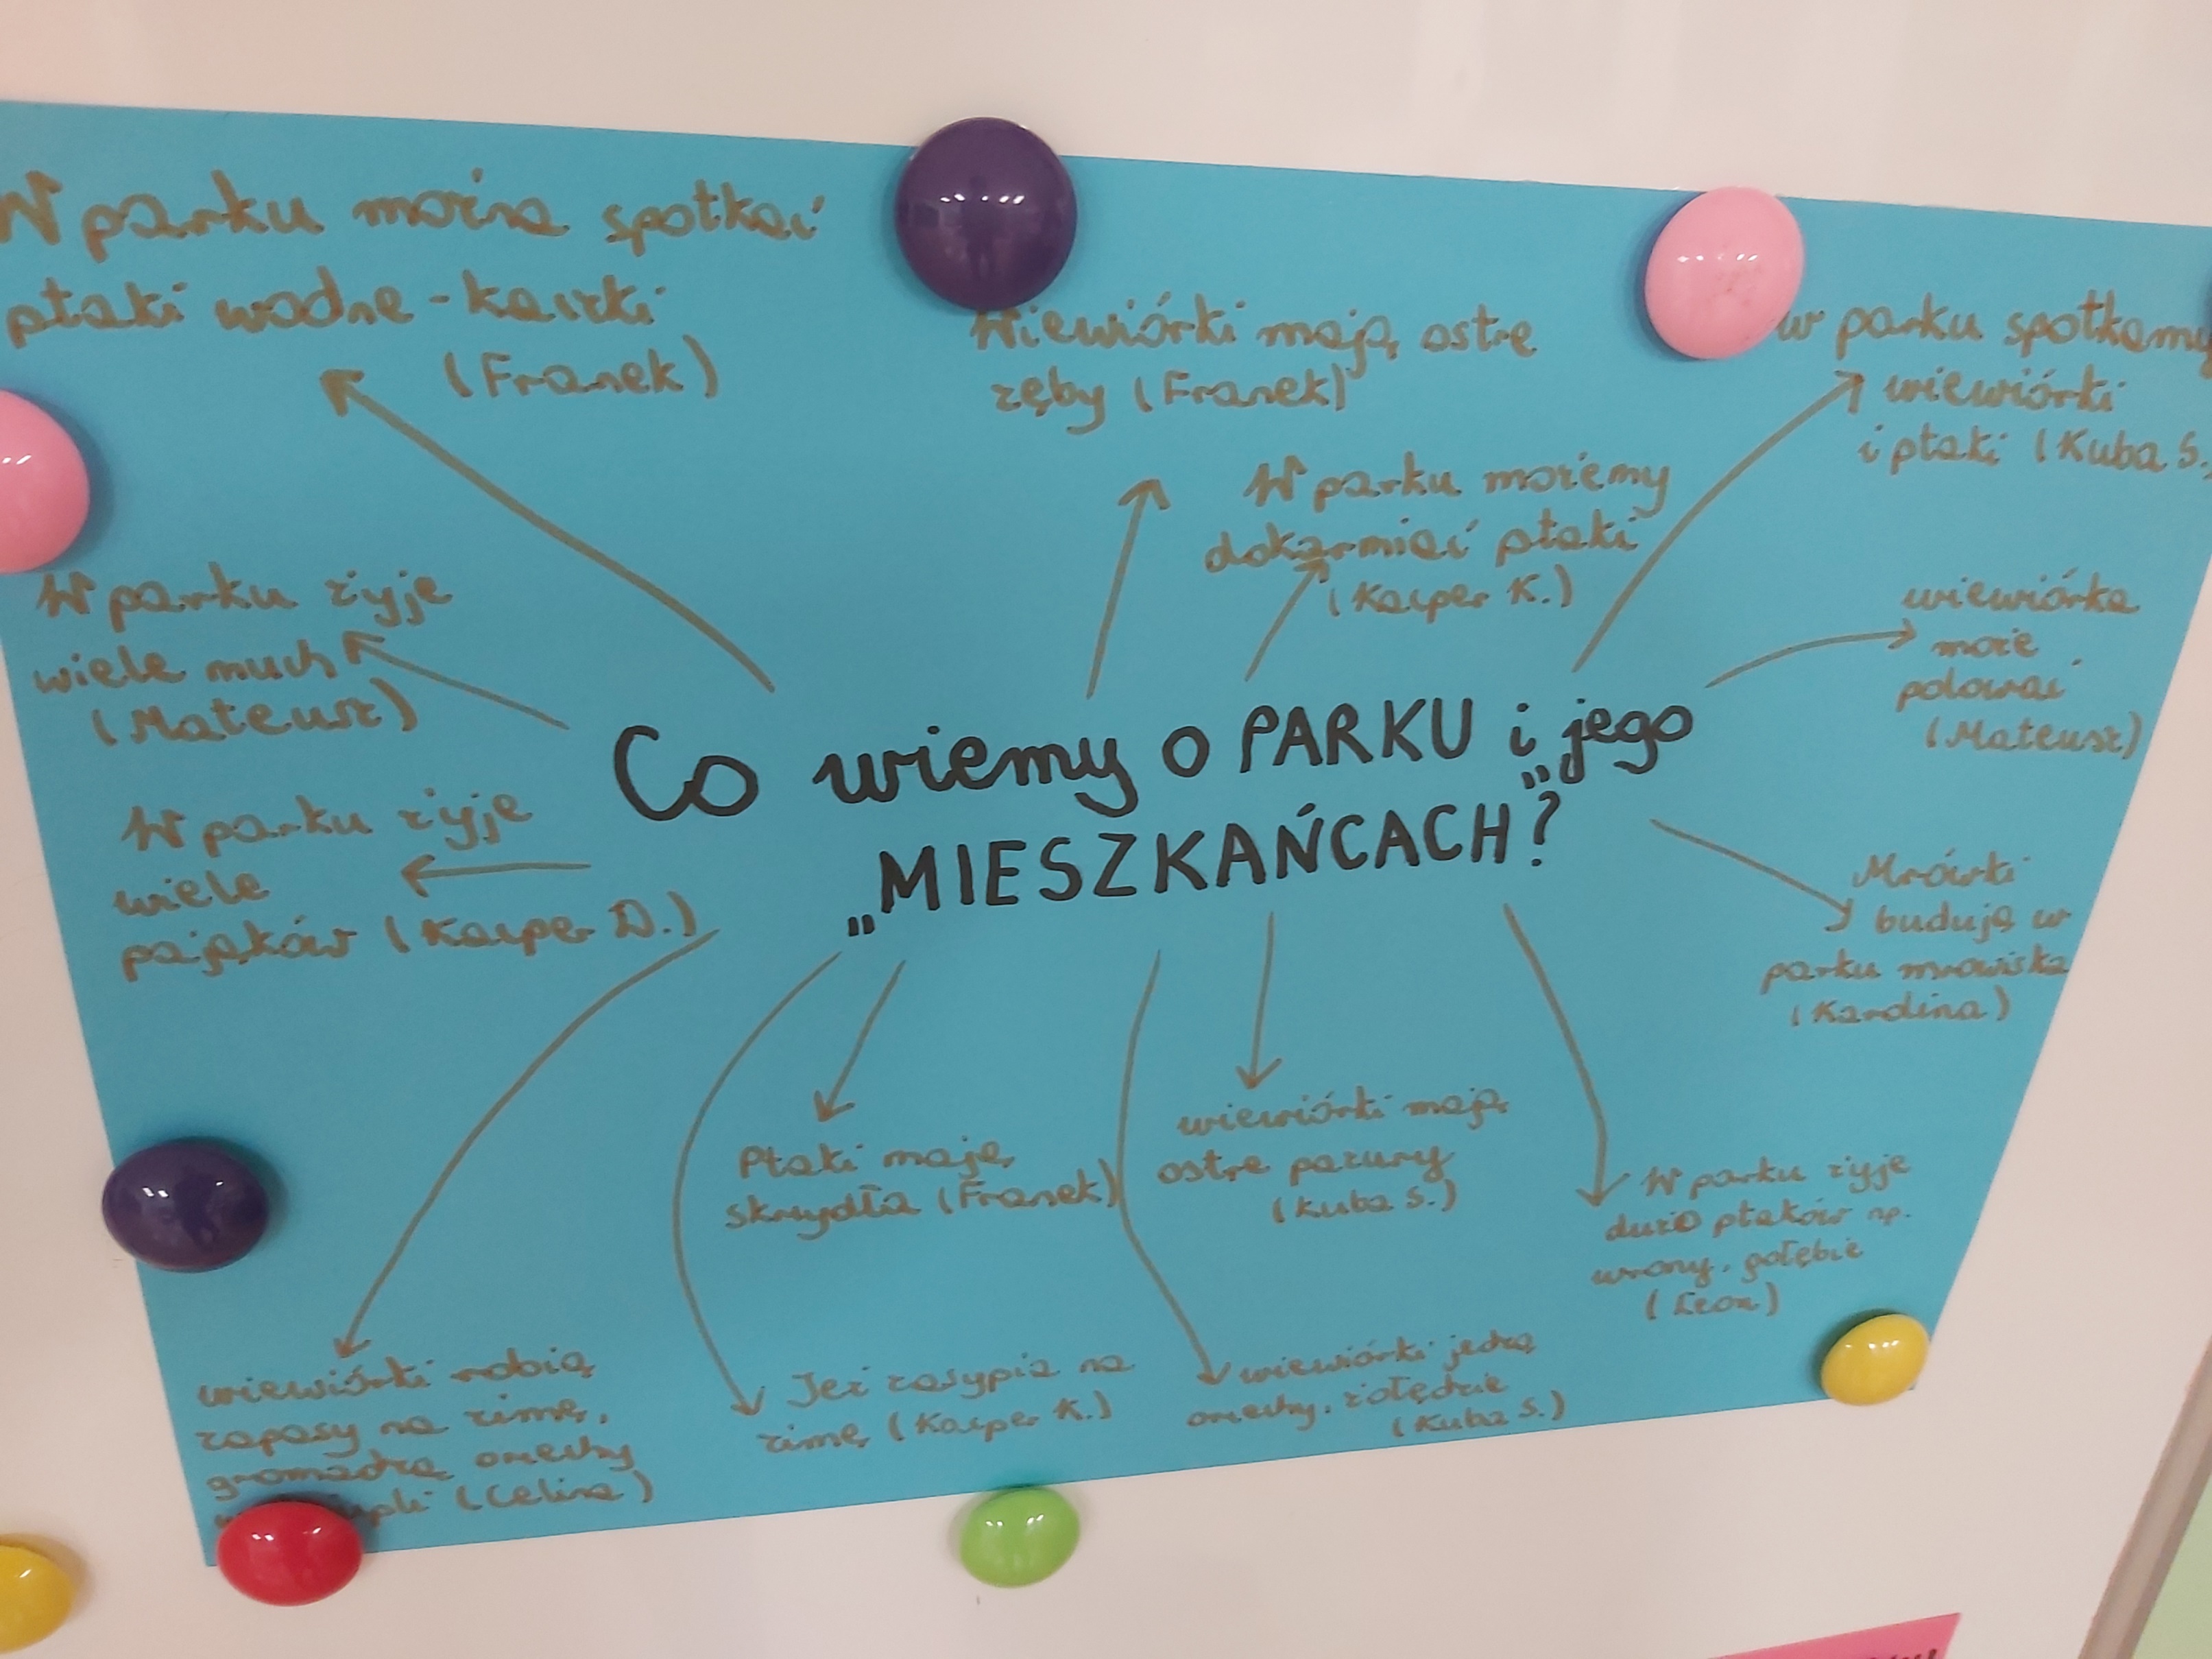 W parku można spotkać
ptaki wodne - kaczki
(Franek)
Wiewiórki mają ostre
zęby (Franek)
W parku możemy
dokarmiać ptaki
(Kacper K.)
w parku spotkamy
wiewiórki
i ptaki (Kuba S.
wiewiórka
może
polować
(Mateusz)
W parku żyje
wiele much
(Mateusz)
W parku żyje
wiele
pająków (Kacper D.)
Co wiemy o PARKU i jego
„MIESZKAŃCACH?"
Mrówki
budują w
parku mrowiska
(Karolina)
Ptaki mają
skrzydła (Franek)
wiewiórki mają
ostre pazury
(Kuba S.)
W parku żyje
dużo ptaków np.
wrony, gołębie
(Leon)
wiewiórki robią
zapasy na zimę,
gromadzą orzechy
(Celina)
Jeż zasypia na
zimę (Kacper K.)
wiewiórki jedzą
orzechy, żołędzie
(Kuba S.)